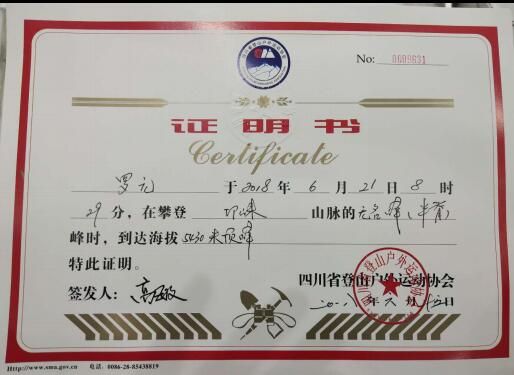 No: 0009631
证明书
Certificate
罗元 于2018年6月21日8时
29分，在攀登 邛崃 山脉的无名峰（半脊
峰时，到达海拔5430米顶峰
特此证明。
四川省登山户外运动协会
签发人：高敏
二〇一八年六月 日
Http://www.sma.gov.cn 电话：0086-28-85438819